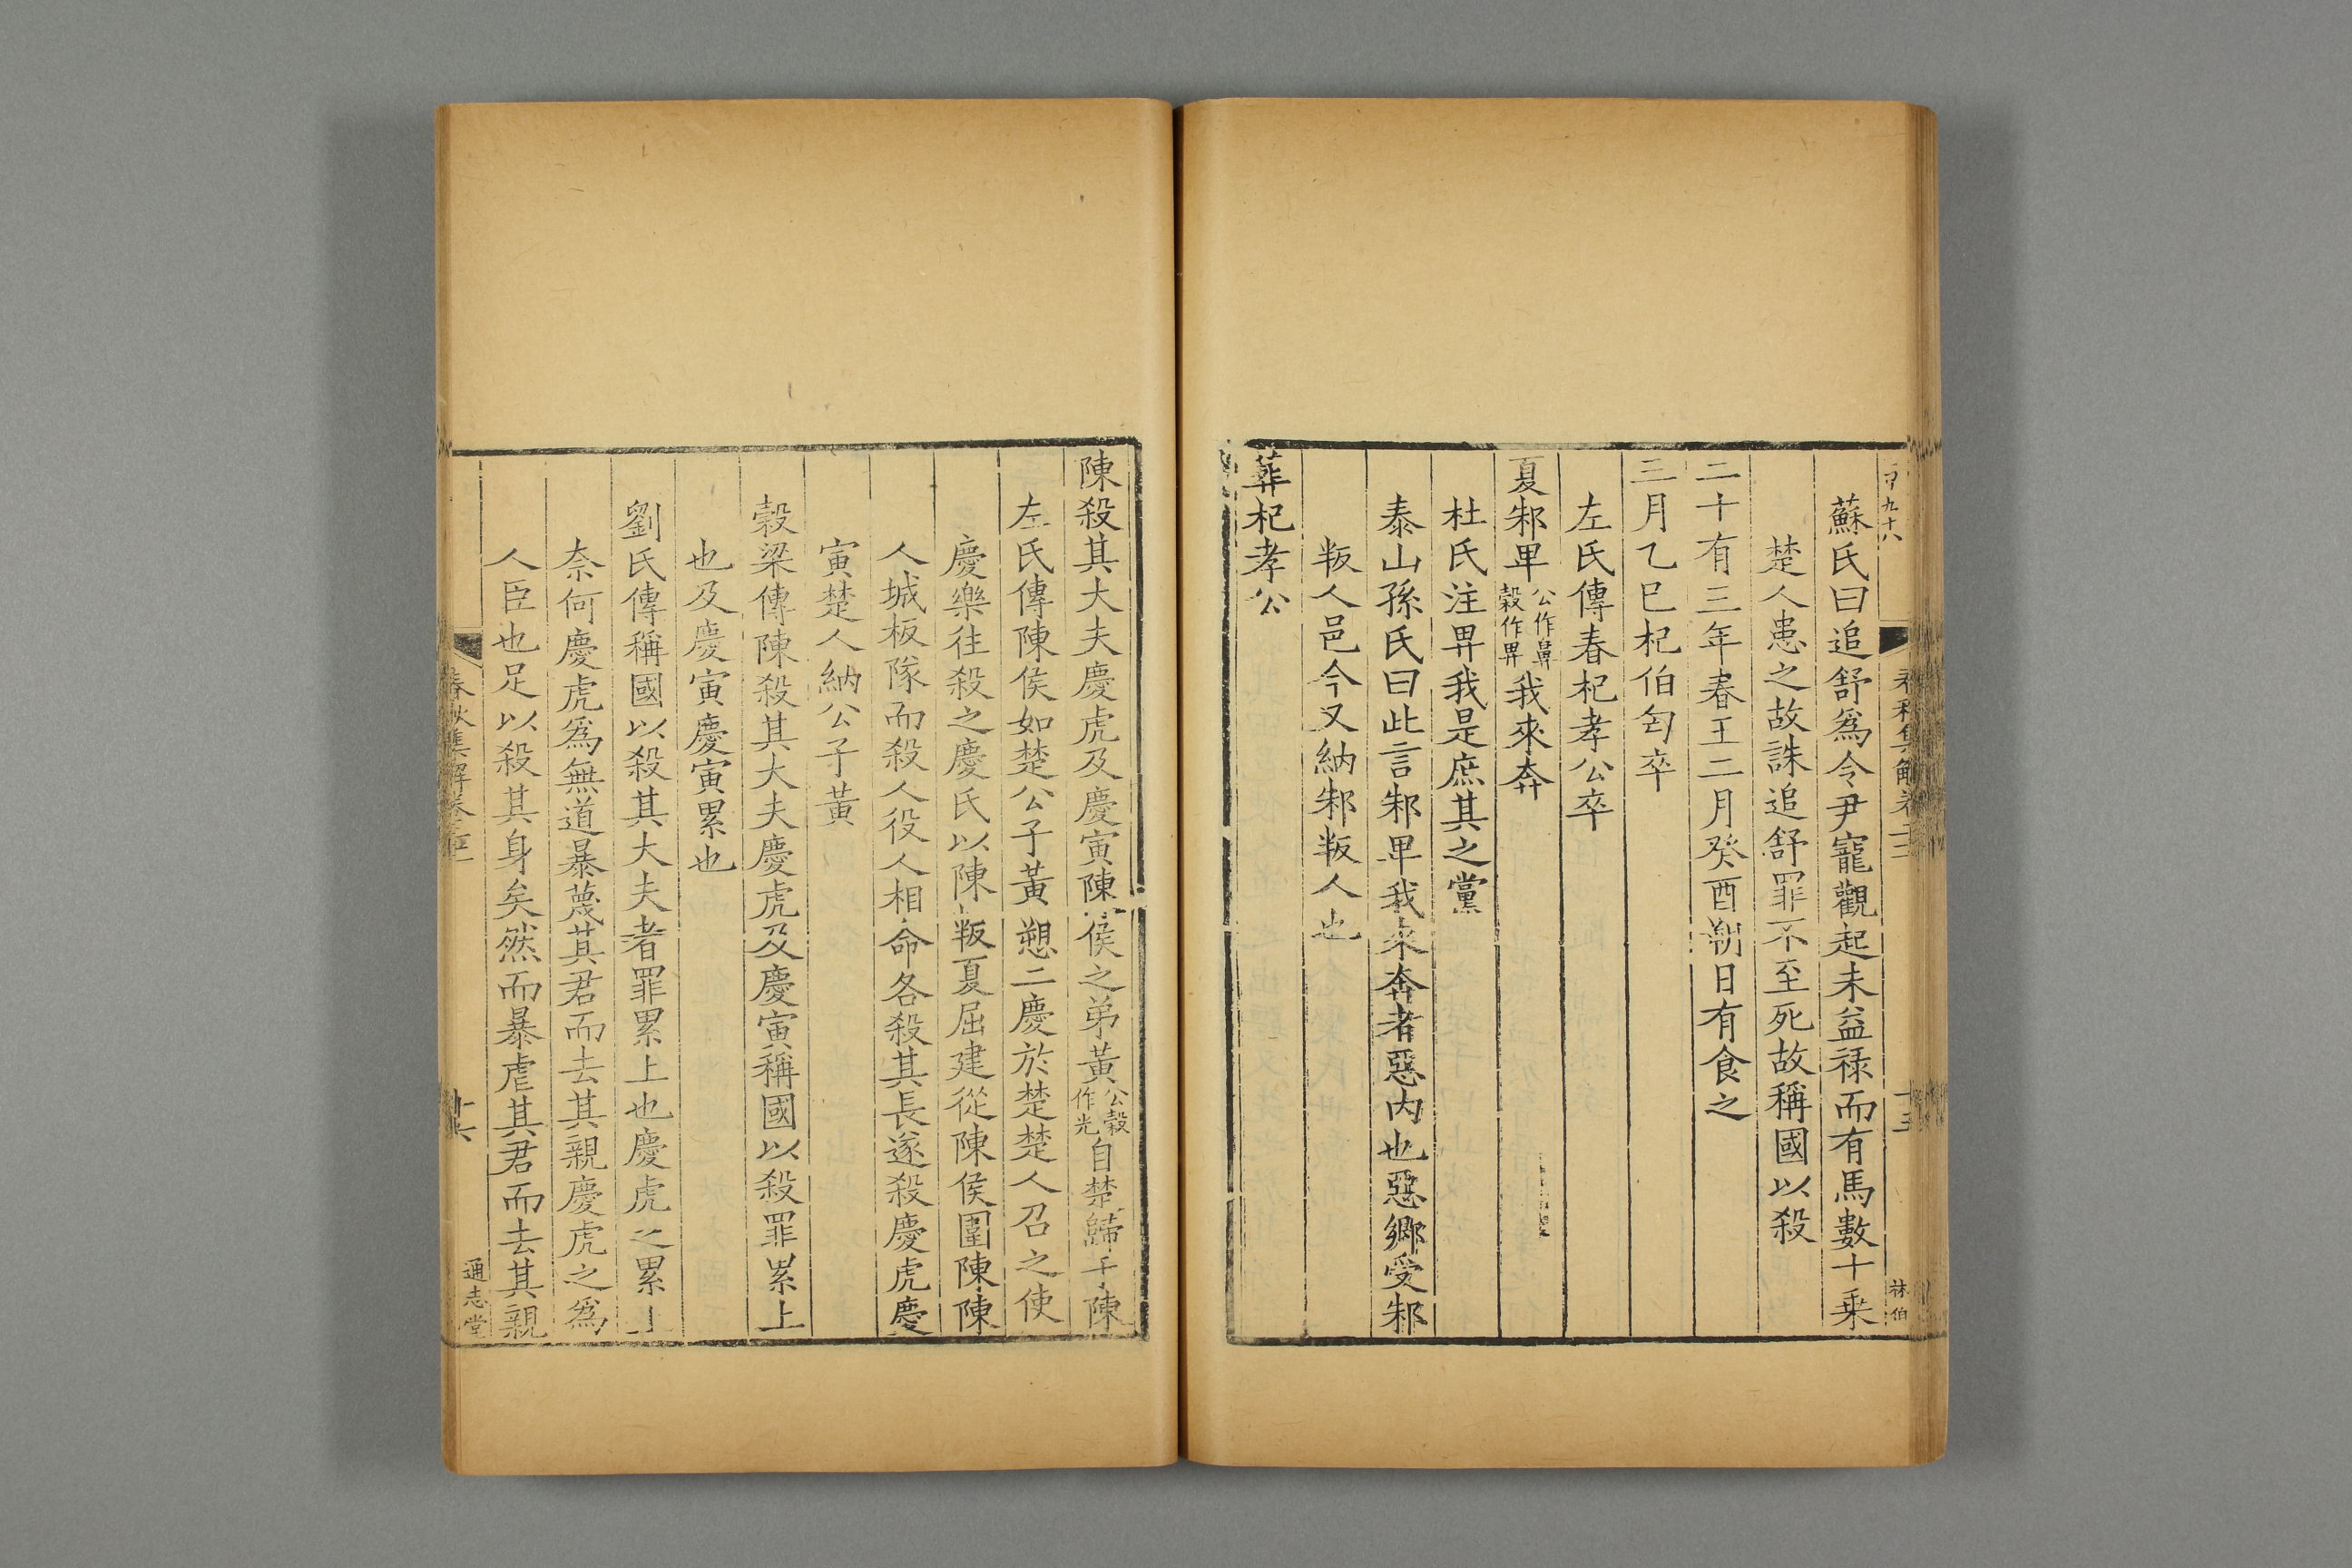 蘇氏曰追舒爲令尹寵觀起未益祿而有馬數十乘
楚人患之故誅追舒罪不至死故稱國以殺
二十有三年春王二月癸酉朔日有食之
三月乙巳杞伯匄卒
左氏傳春杞孝公卒
夏邾畀公作鼻穀作畀我來奔
杜氏注畀我是庶其之黨
泰山孫氏曰此言邾畀我來奔者惡内也惡鄉受邾
叛人邑今又納邾叛人也
葬杞孝公
陳殺其大夫慶虎及慶寅陳侯之弟黃公穀作光自楚歸于陳
左氏傳陳侯如楚公子黃愬二慶於楚楚人召之使
慶樂往殺之慶氏以陳叛夏屈建從陳侯圍陳陳
人城板隊而殺人役人相命各殺其長遂殺慶虎慶
寅楚人納公子黃
穀梁傳陳殺其大夫慶虎及慶寅稱國以殺罪累上
也及慶寅慶寅累也
劉氏傳稱國以殺其大夫者罪累上也慶虎之累上
奈何慶虎爲無道暴蔑其君而去其親慶虎之爲
人臣也足以殺其身矣然而暴虐其君而去其親
春秋集解卷
通志堂